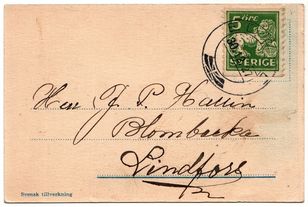 5 ÖRE
SVERIGE
Herr J. P. Hallin
Blombacka
Lindfors
Svensk tillverkning